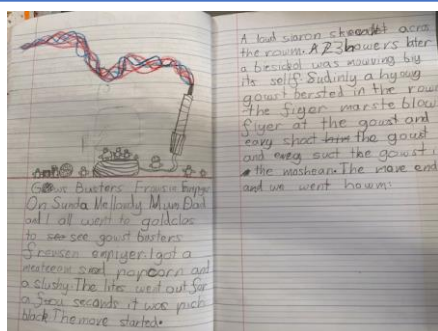 Gows Busters Frowsin Empyer
On Sunda Mellondy Mum Dad
and I all went to goldclas
to see gowst busters
frowsen empiyer. I got a
popcorn and
a slushy. The lites went out for
a fwou seconds it was pich
black. The move started.
A loud siaron shee acrss
the rowm. A 23 howers later
a besickol was mouving biy
its self. Sudinly a hyowg
gowst bersted in the row
the figer marste blow
fiyer at the gowst and
eavy shoot the gowst
and suct the gowst i
the moshean. The move end
and we went howm.